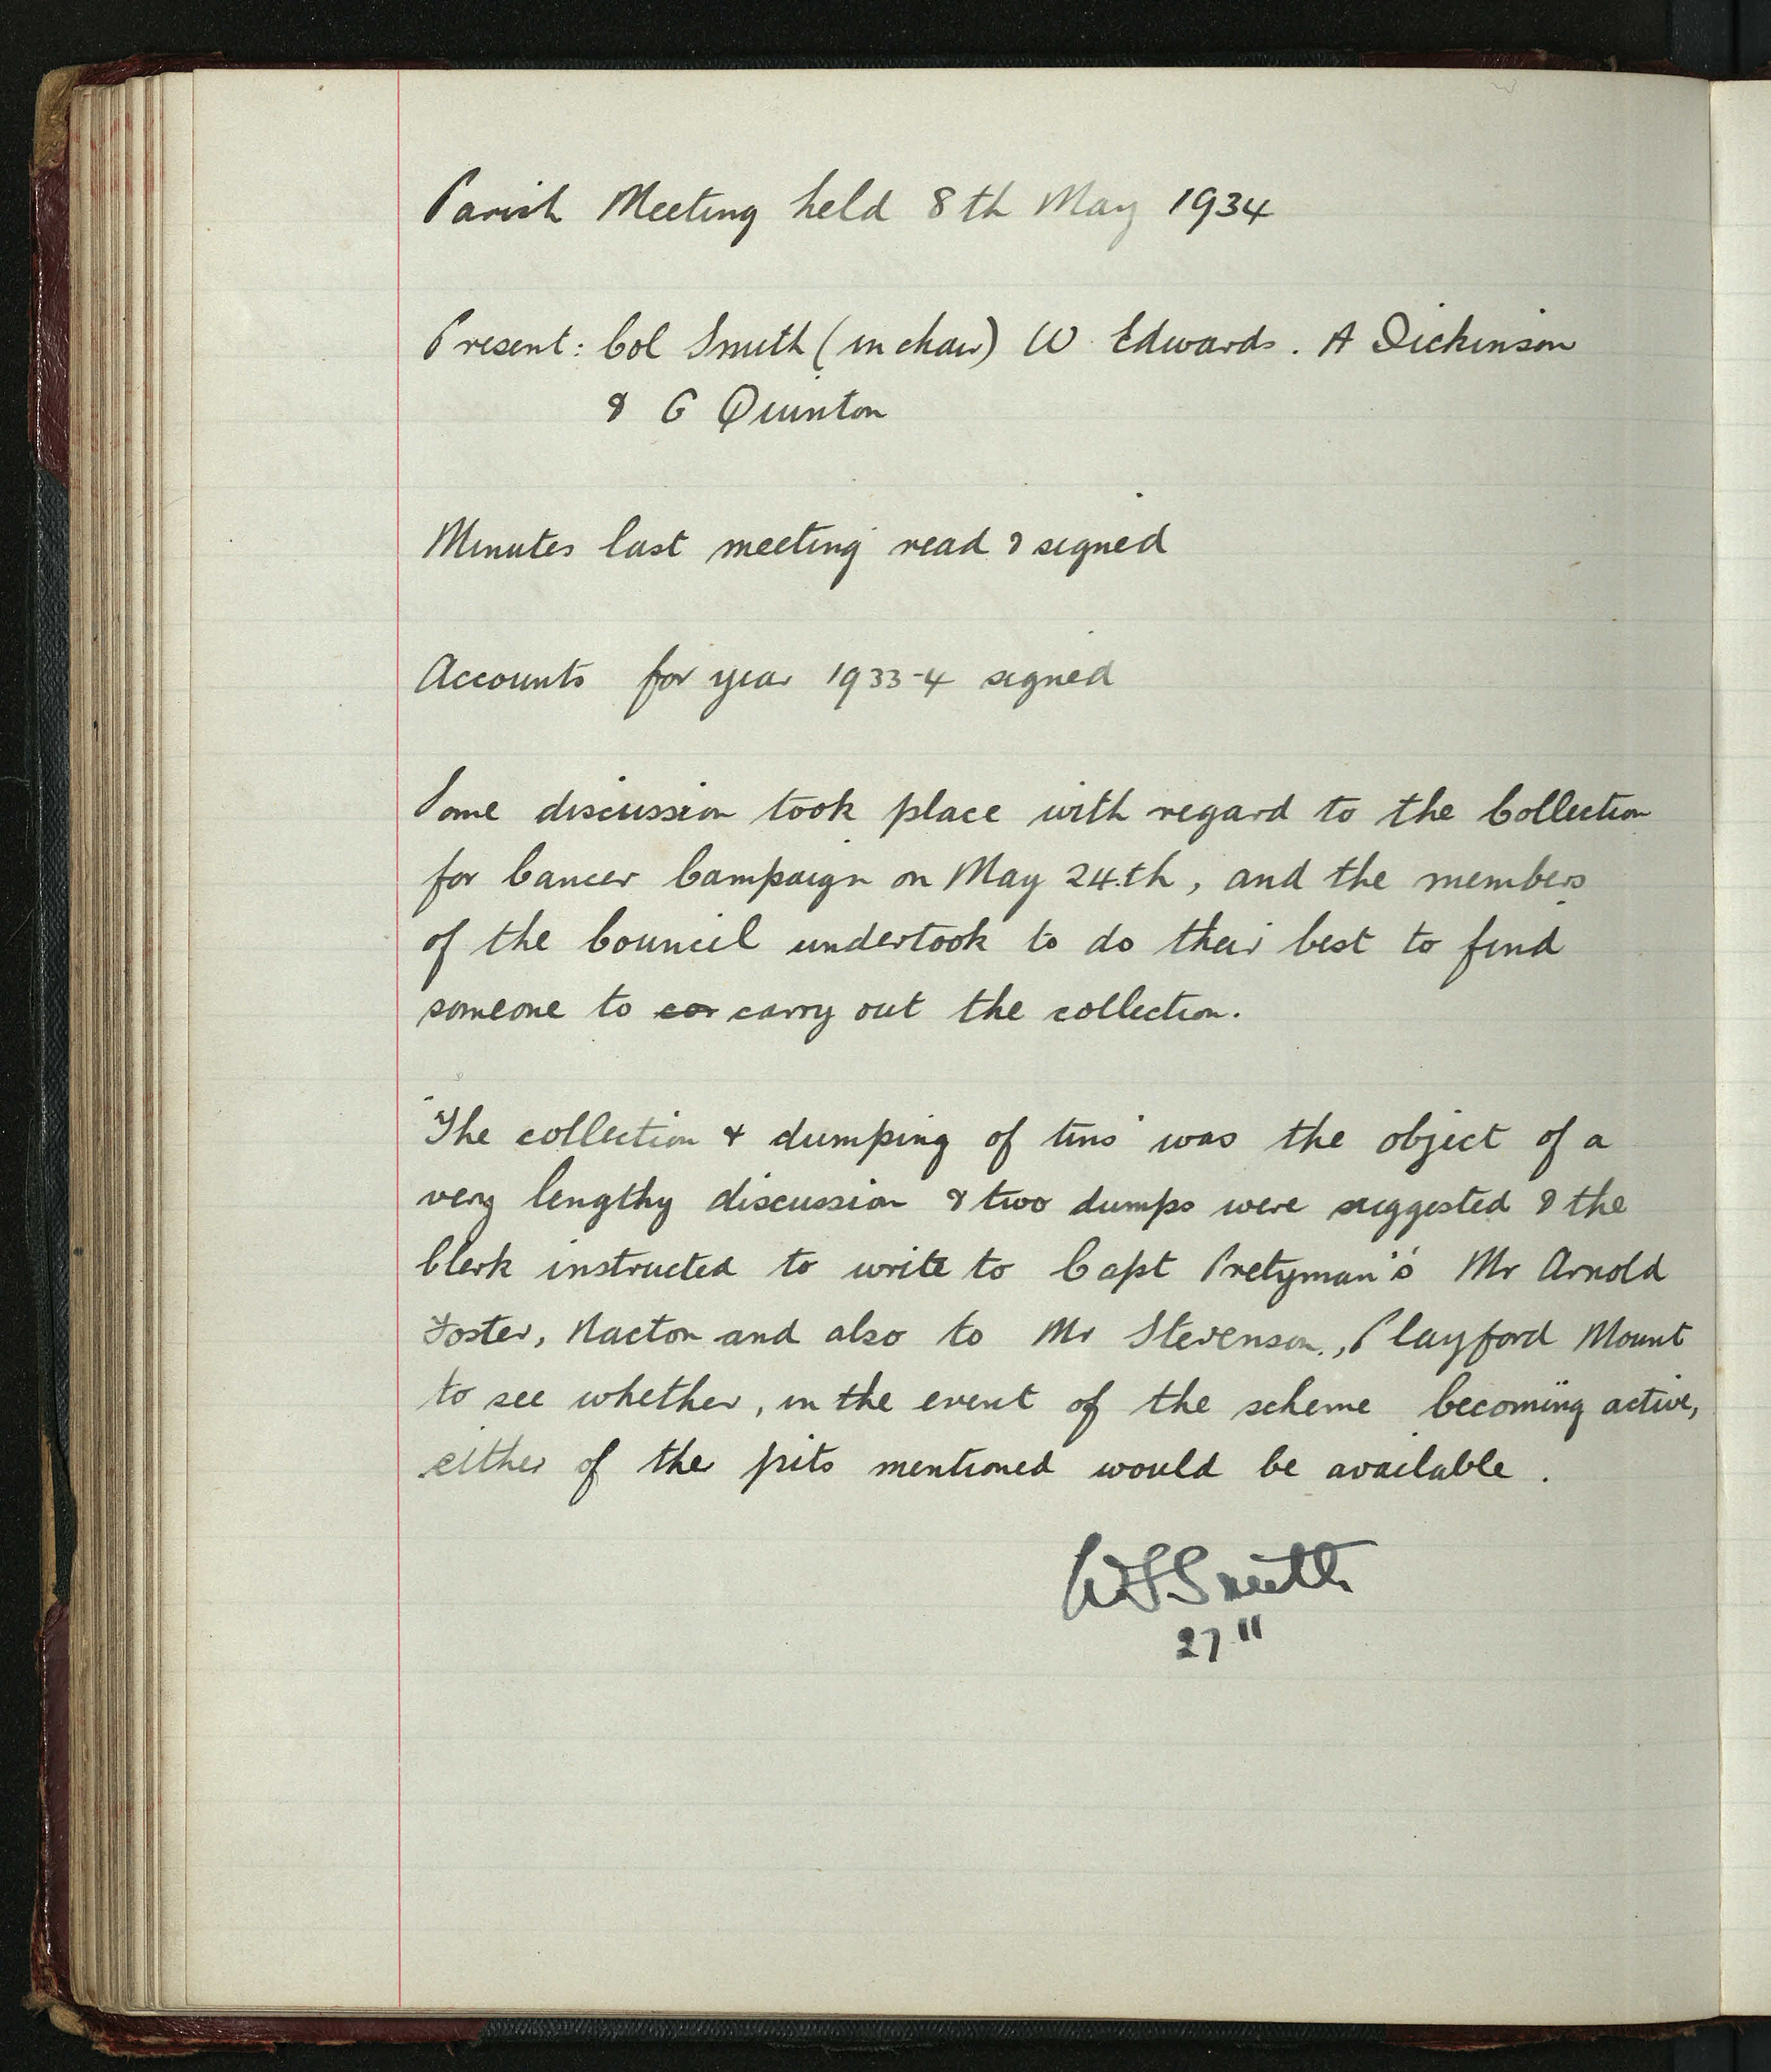 Parish Meeting held 8th May 1934
Present: Col Smith (in chair) W Edwards. A Dickinson
& G Quinton
Minutes last meeting read & signed
Accounts for year 1933-4 signed
Some discussion took place with regard to the Collection
for Cancer Campaign on May 24th, and the members
of the Council undertook to do their best to find
someone to car carry out the collection.
"The collection & dumping of tins" was the object of a
very lengthy discussion & two dumps were suggested & the
Clerk instructed to write to Capt Pretyman's Mr Arnold
Foster, Nacton and also to Mr Stevenson, Playford Mount
to see whether, in the event of the scheme becoming active,
either of the pits mentioned would be available.
Smith
27 "